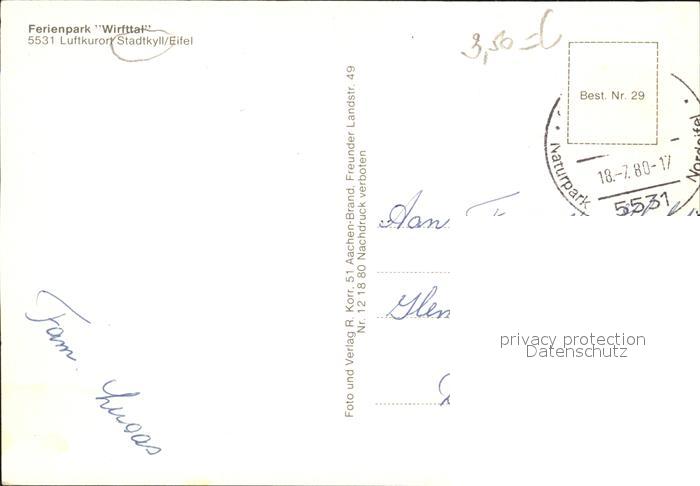 Ferienpark "Wirfttal"
5531 Luftkurort Stadtkyll/Eifel
3,50 =
Best. Nr. 29
Naturpark Nordeifel
18.-7.80-17
5531
Foto und Verlag R. Korr, 51 Aachen-Brand, Freunder Landstr. 49
Nr. 12 18 80 Nachdruck verboten
Aan
Fam. Lucas
privacy protection
Datenschutz